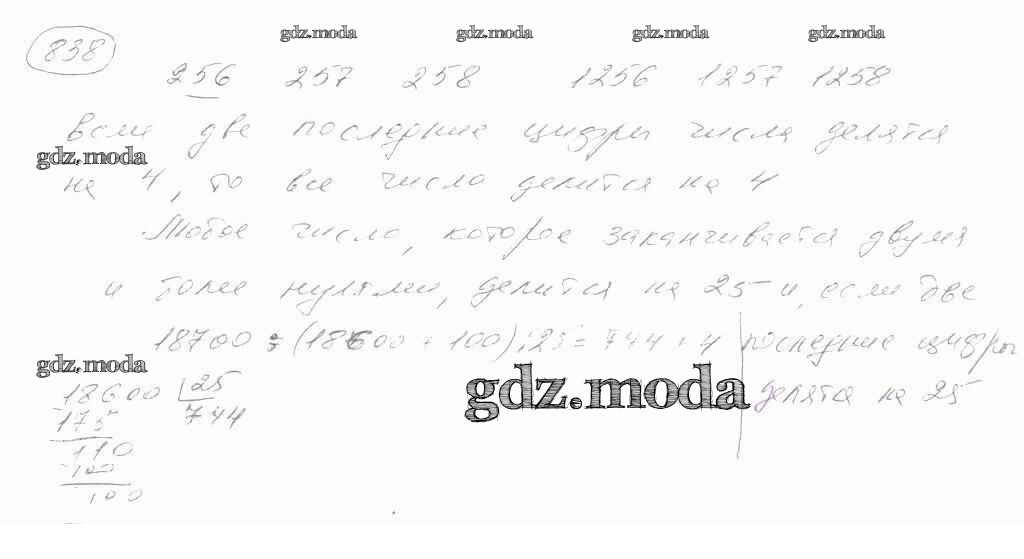 838
gdz.moda gdz.moda gdz.moda gdz.moda
256 257 258 1256 1257 1258
Если две последние цифры числа делятся
gdz.moda
на 4, то все число делится на 4
Любое число, которое заканчивается двумя
и более нулями, делится на 25 и, если две
18700 = (18600 + 100) : 25 = 744 + 4
последние цифры
делятся на 25
gdz.moda
gdz.moda
18600 25
175 744
110
100
100